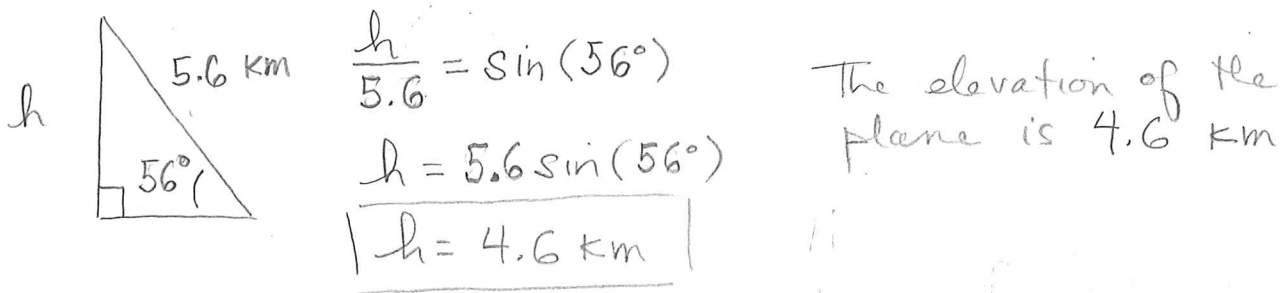 h
5.6 km
56°
h/5.6 = sin(56°)
h = 5.6 sin(56°)
h = 4.6 km
The elevation of the
plane is 4.6 km